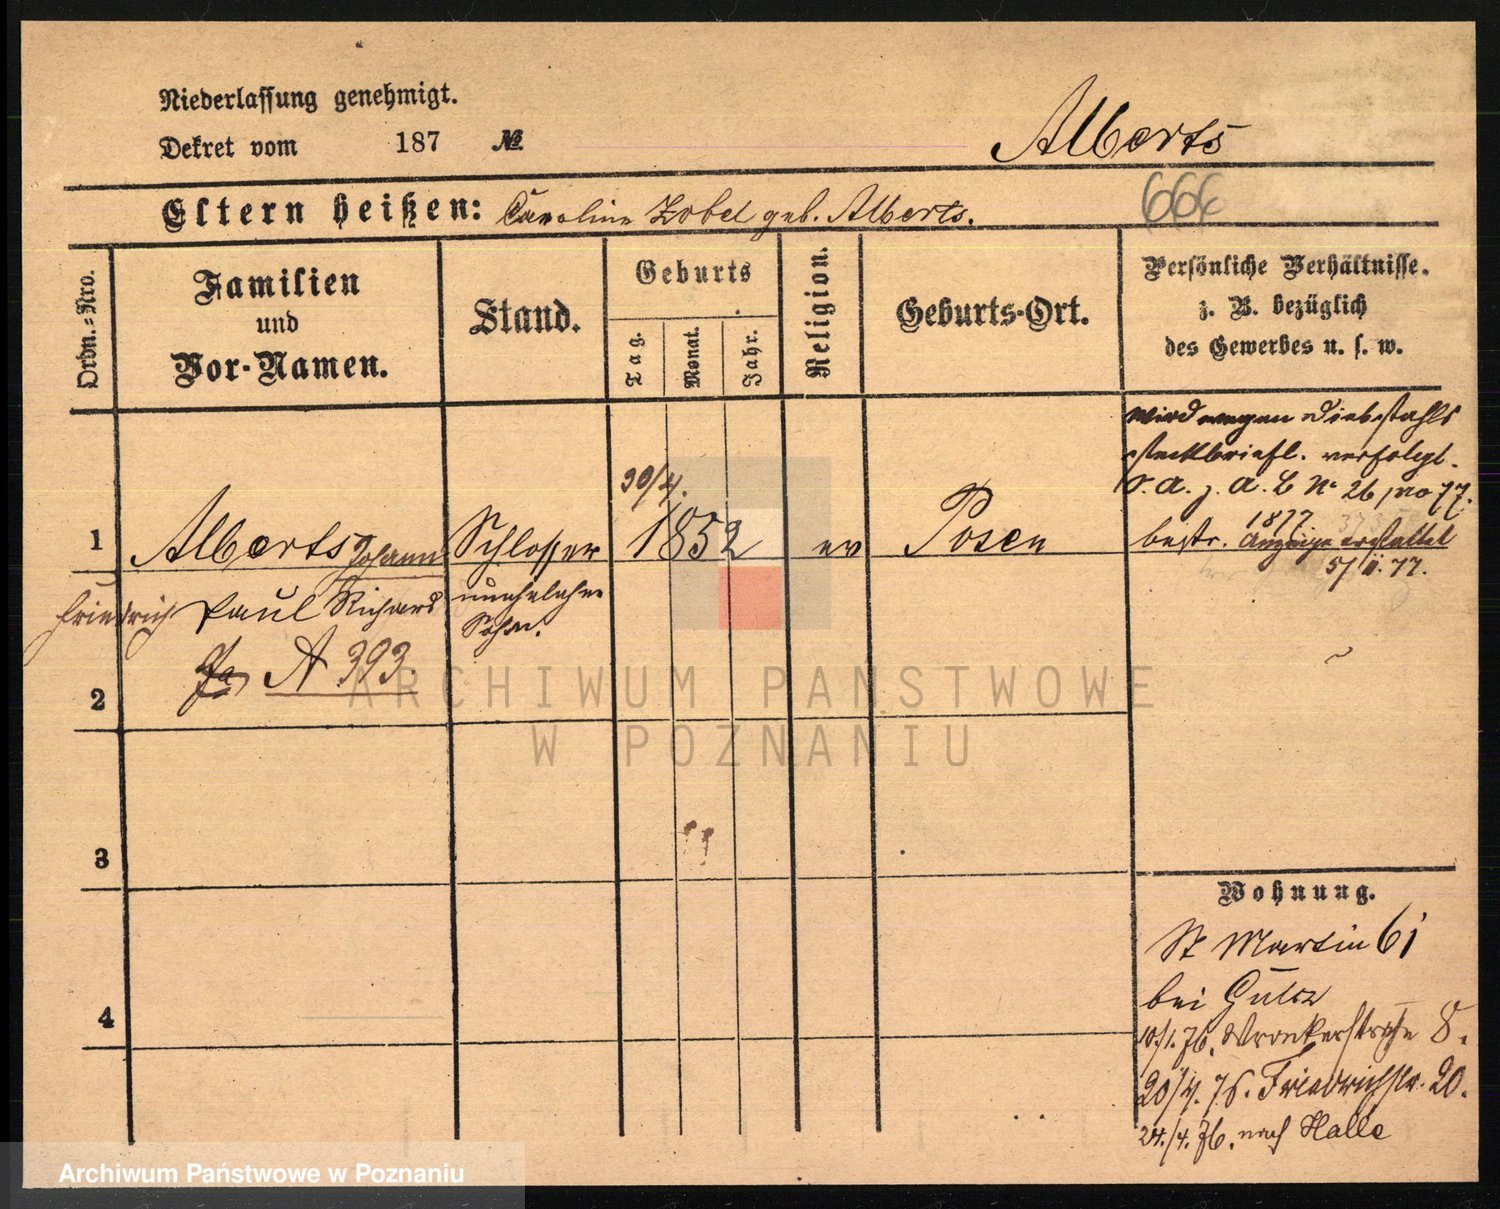 Niederlassung genehmigt.
Dekret vom 187 №
Alberts
Eltern heißen: Caroline Zobel geb. Alberts.
666
Ordn.-Nro.
Familien
und
Vor-Namen.
Stand.
Geburts
Tag.
Monat.
Jahr.
Religion.
Geburts-Ort.
Persönliche Verhältnisse.
z. B. bezüglich
des Gewerbes u. s. w.
wird wegen Diebstahls
steckbriefl. verfolgt.
1
Alberts Johann
Friedrich Paul Richard
A 393.
Schlosser
unehelicher
Sohn.
30/4.
1852
ev
Posen
1877
bestr. Anzeige erstattet
5/II. 77.
2
3
4
Wohnung.
St Martin 61
bei
10./1. 76. Wronkerstraße 8.
20/4. 76. Friedrichstr. 20.
24./4. 76. nach Halle
ARCHIWUM PAŃSTWOWE
W POZNANIU
Archiwum Państwowe w Poznaniu